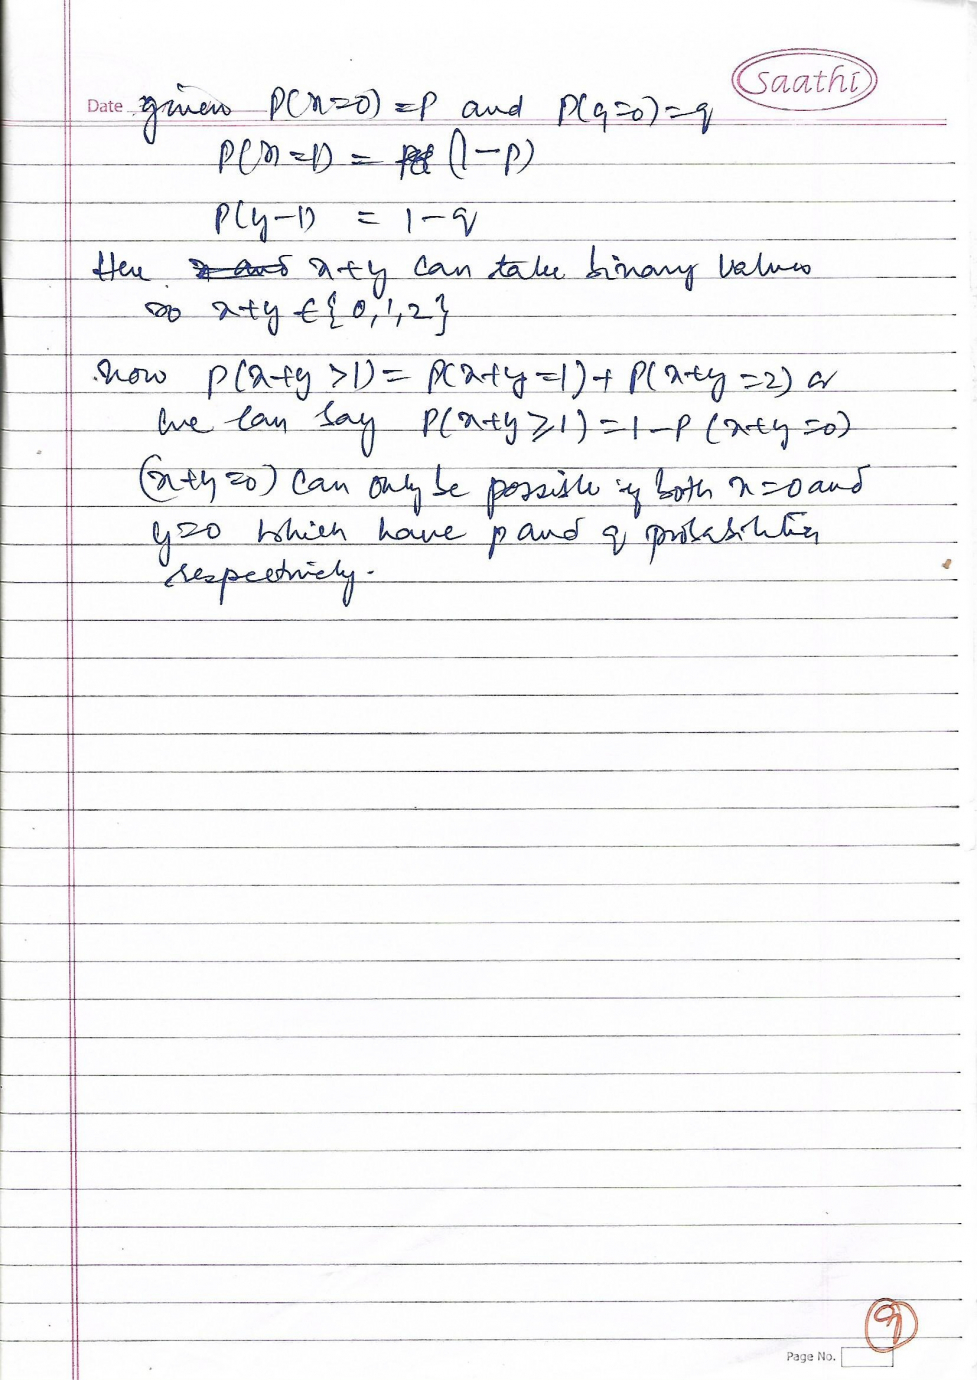 Saathi
Date given P(x=0) = P and P(y=0) = q
P(x=1) = (1-p)
P(y-1) = 1-q
Here x+y can take binary values
so x+y ∈ {0,1,2}
now P(x+y >1) = P(x+y=1) + P(x+y=2) or
we can say P(x+y ≥ 1) = 1-P (x+y=0)
(x+y=0) can only be possible if both x=0 and
y=0 which have p and q probabilities
respectively.
9
Page No.